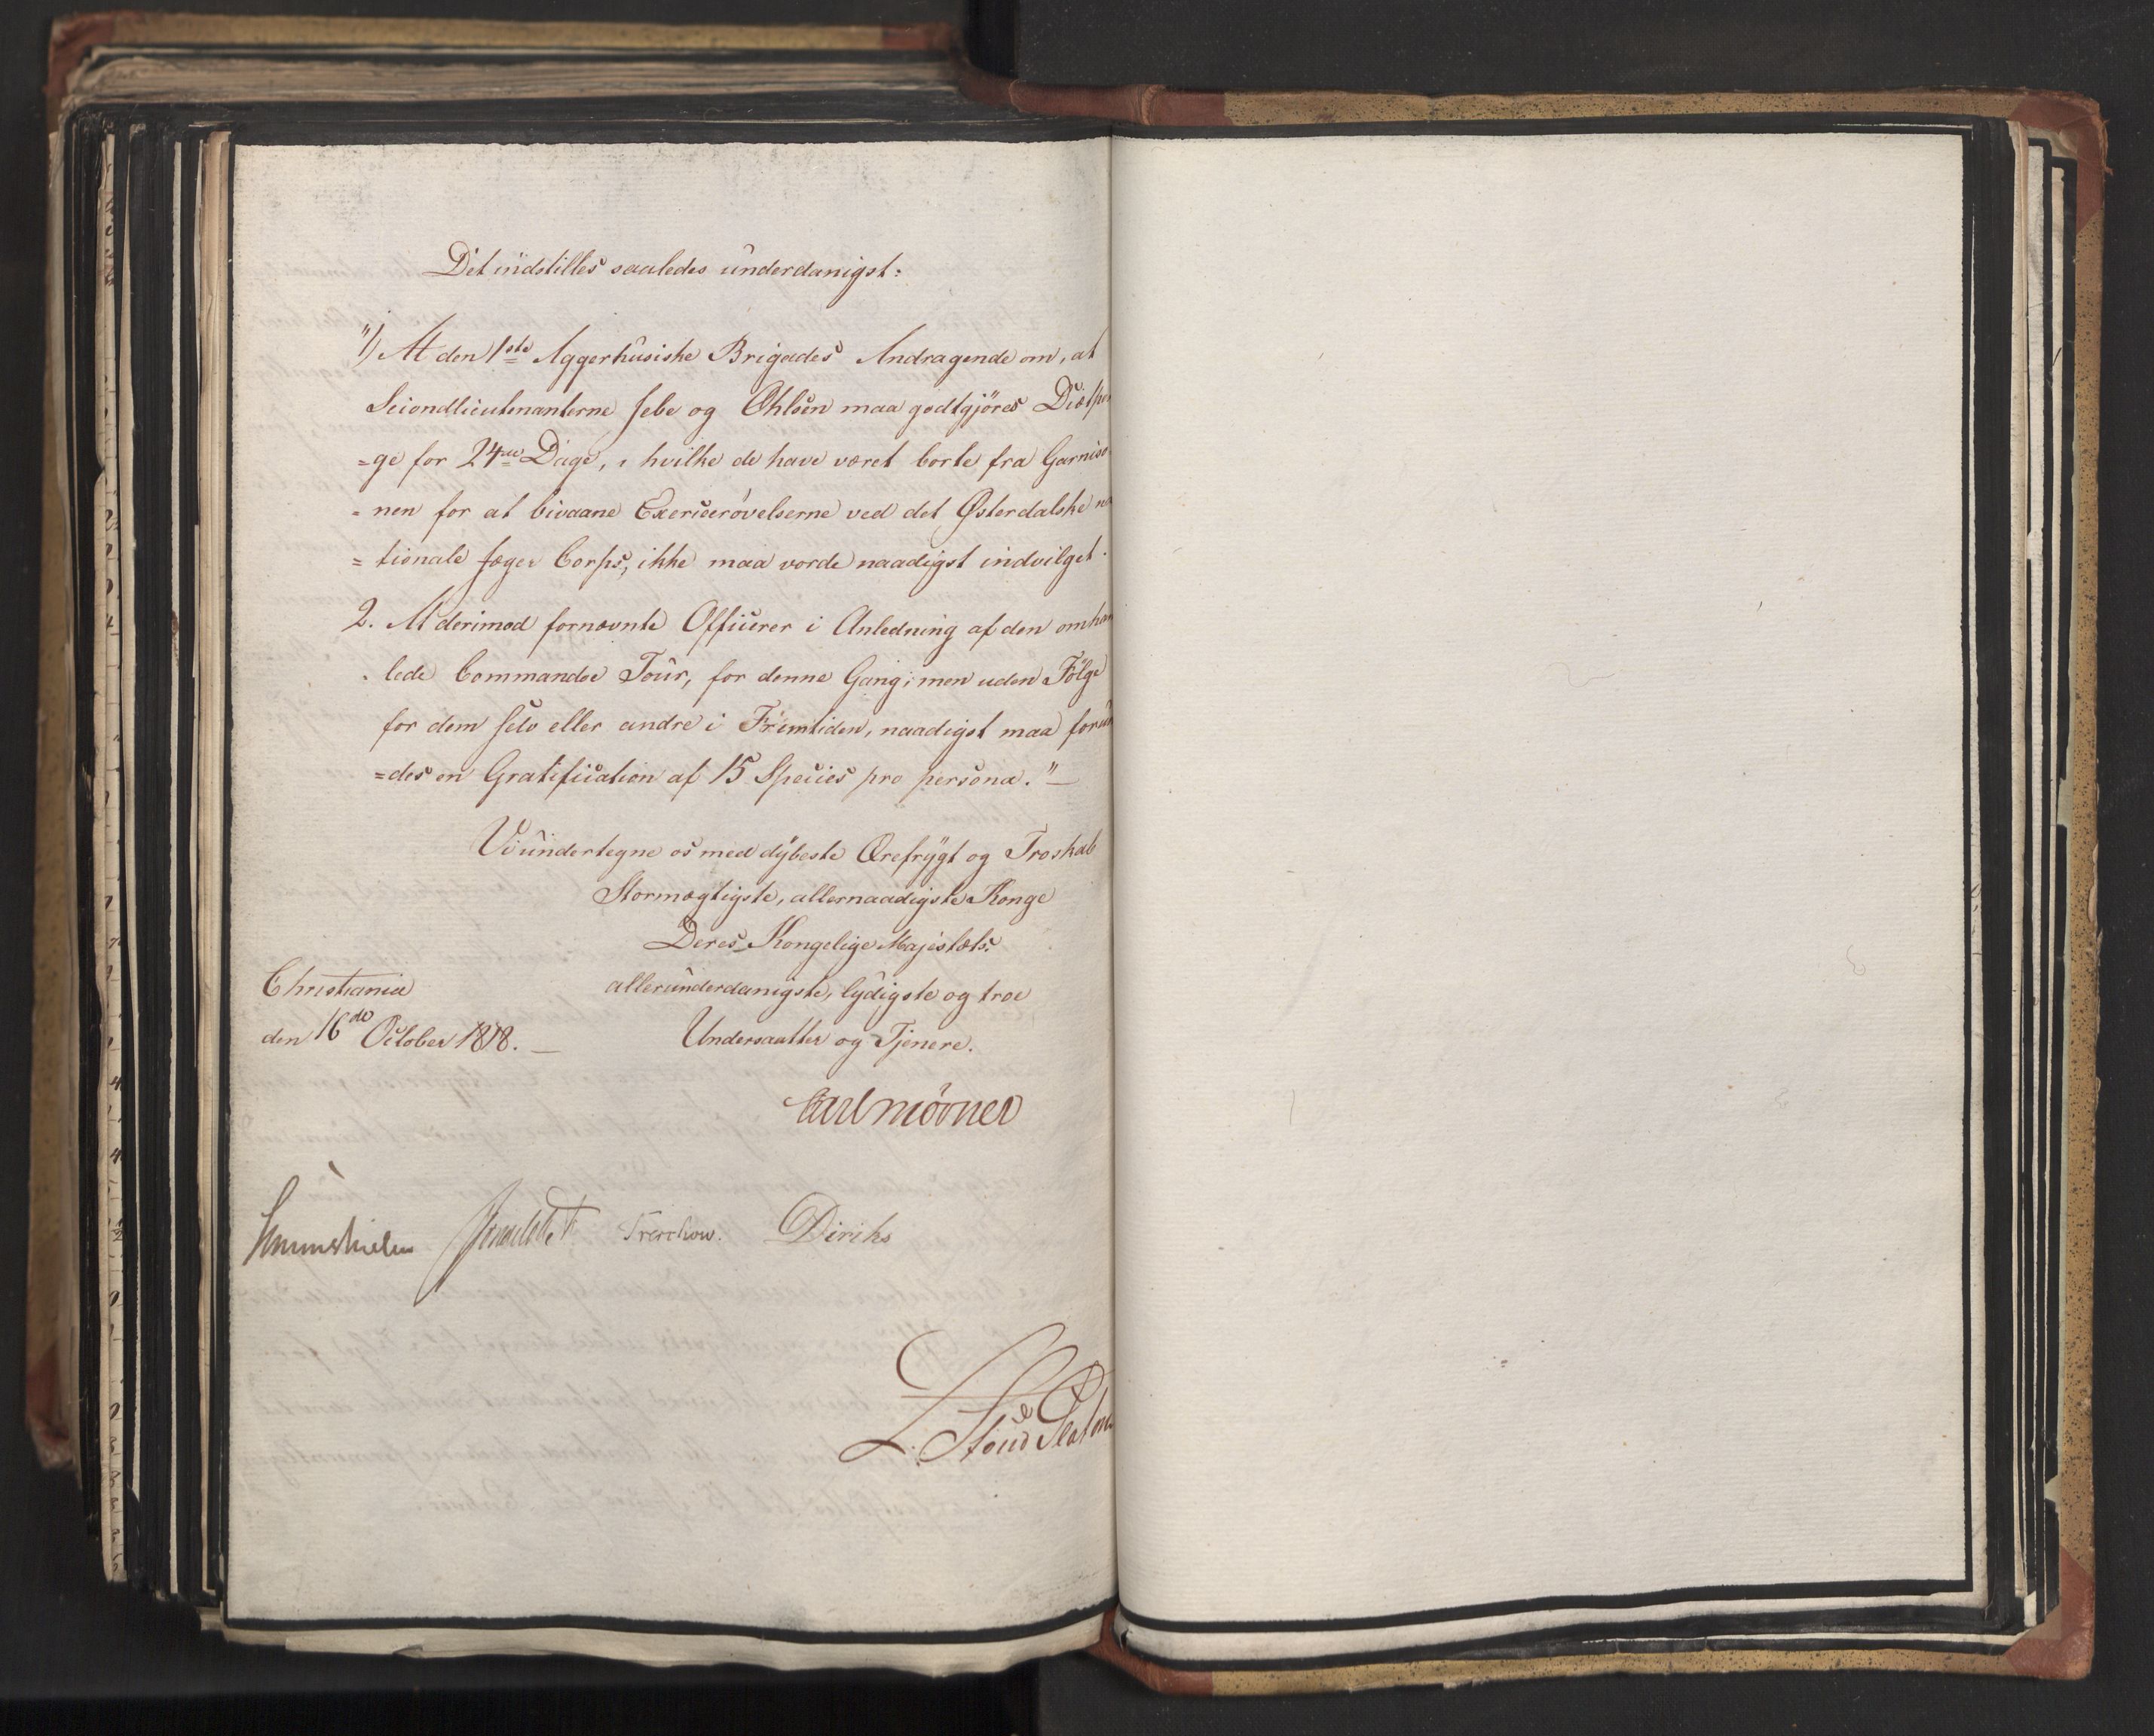 Det indstilles saaledes underdanigst:
"1) At den 1ste Aggerhusiske Brigades Andragende om, at
Secondlieutenanterne Jebe og Ohlsen maa godtgjöres Diætpen
=ge for 24re Dage, i hvilke de have været borte fra Garniso
=nen for at bivaane Exercerövelserne ved det Østerdalske na
=tionale Jæger Corps, ikke maa vorde naadigst indvilget.
2. At derimod fornævnte Officerer i Anledning af den omhan
=lede Commandoe Tour, for denne Gang; men uden Fölge
for dem selv eller andre i Fremtiden, naadigst maa forun
=des en Gratification af 15 Species pro persona."—
Vi undertegne os med dybeste Ærefrygt og Troskab
Stormægtigste, allernaadigste Konge
Deres Kongelige Majestæts
Christiania
allerunderdanigste, lydigste og troe
den 16de October 1818. —
Undersaatter og Tjenere.
Carl Mörner
Sommerhielm Treschow. Diriks
L. Stoud Platou